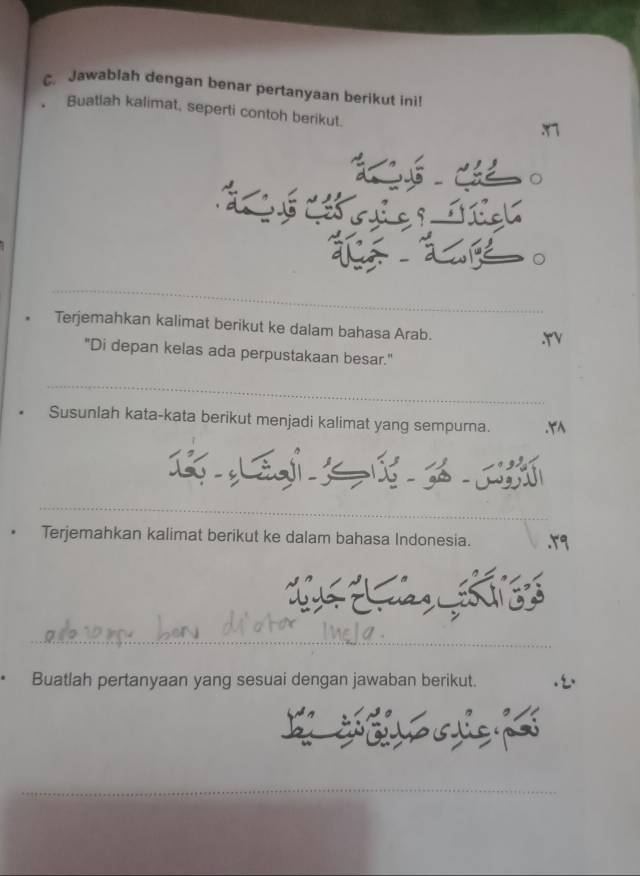 C. Jawablah dengan benar pertanyaan berikut ini!
Buatlah kalimat, seperti contoh berikut.
.٣٦
○ كُتُبٌ - قَدِيْمَةٌ
مَاعِنْدَكَ؟ عِنْدِي كُتُبٌ قَدِيْمَةٌ.
○ كُرَّاسَةٌ - جَمِيْلَةٌ
Terjemahkan kalimat berikut ke dalam bahasa Arab.
.٣٧
"Di depan kelas ada perpustakaan besar."
Susunlah kata-kata berikut menjadi kalimat yang sempurna.
.٣٨
الدُّرُوْسَ - هُوَ - يُذَاكِرُ - الْعِشَاءِ - بَعْدَ
Terjemahkan kalimat berikut ke dalam bahasa Indonesia.
.٣٩
فَوْقَ الْمَكْتَبِ مِصْبَاحٌ جَدِيْدٌ
baru diatas meja.
Buatlah pertanyaan yang sesuai dengan jawaban berikut.
.٤٠
نَعَمْ، عِنْدِي صَدِيْقٌ نَشِيْطٌ